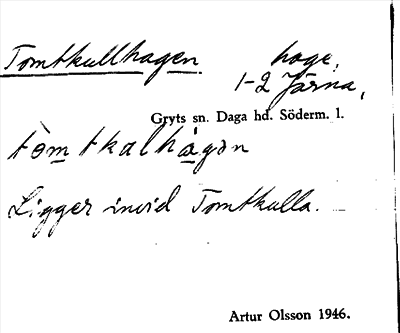 Tomtkullhagen hage,
1-2 Järna,
Gryts sn. Daga hd. Söderm. l.
tòmtkalhàgən
Ligger invid Tomtkulla.
Artur Olsson 1946.